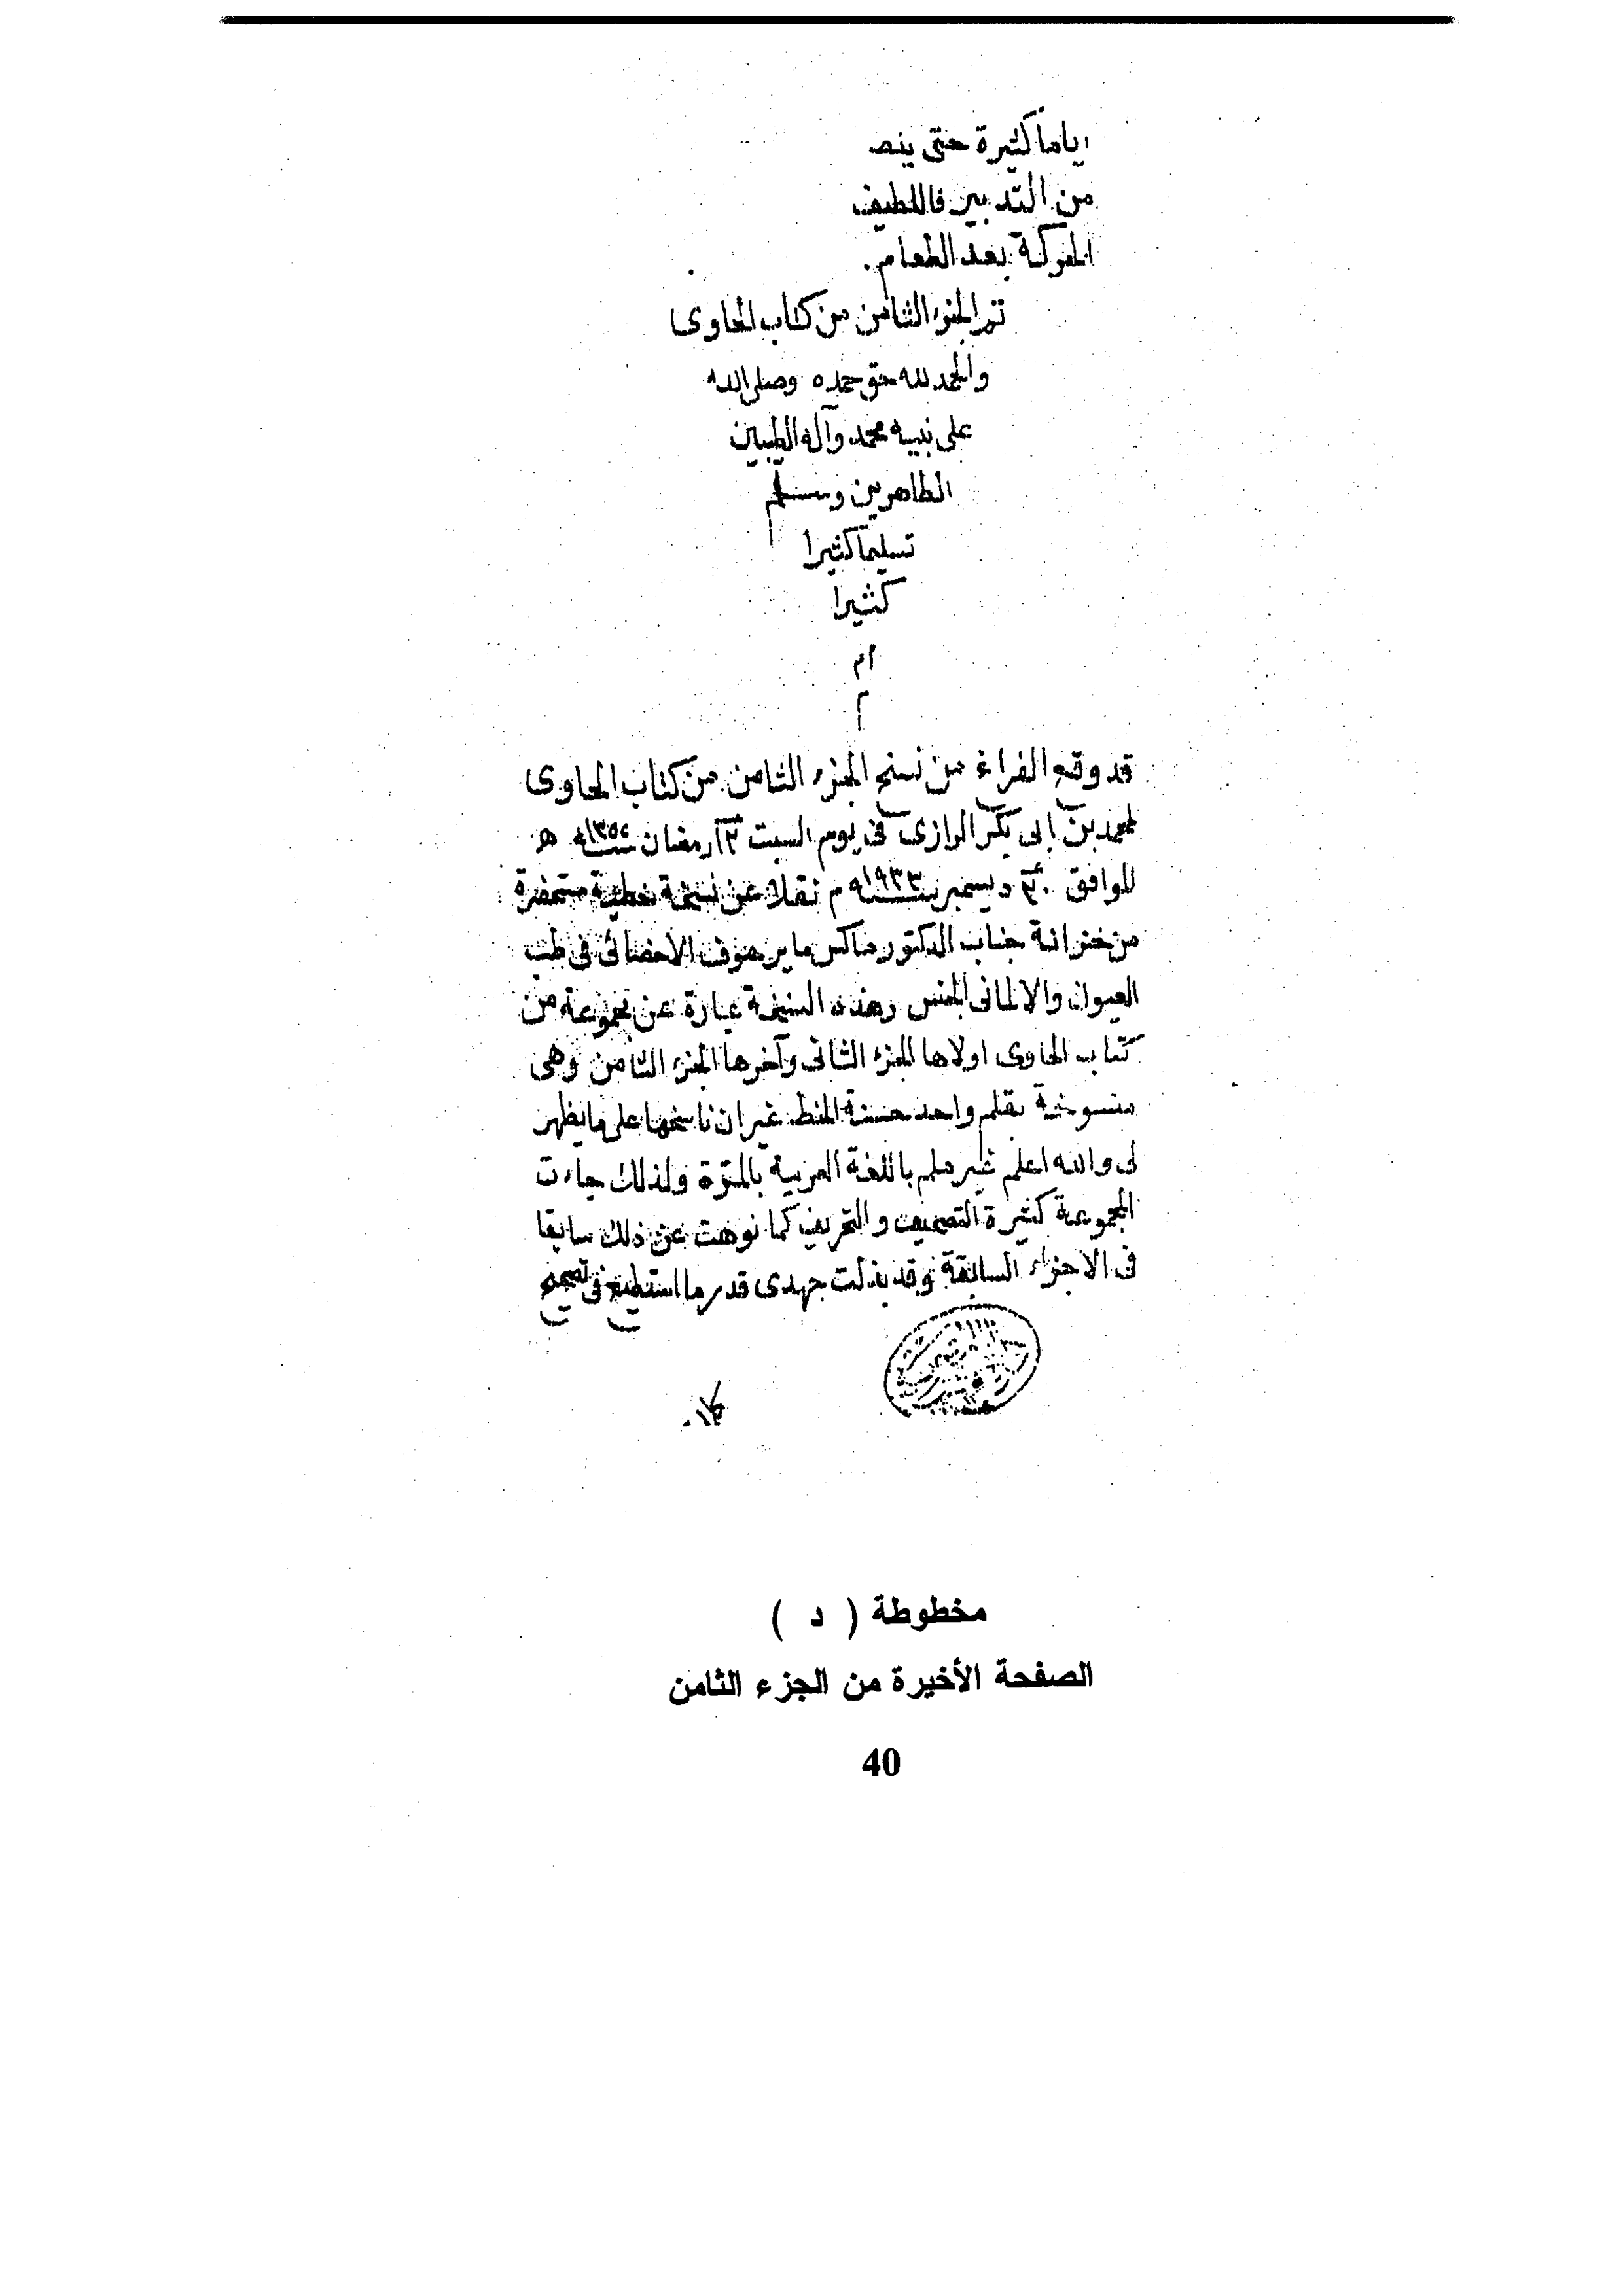 اياما كثيرة حتى ينص
من التدبير فاللطيف
الحركة بعد الطعام.
تم الجزء الثامن من كتاب الحاوى
والحمد لله حق حمده وصلى الله
على نبيه محمد وآله الطيبين
الطاهرين وسلم
تسليما كثيرا
كثيرا
ام
م
قد وقع الفراغ من نسخ الجزء الثامن من كتاب الحاوى
لمحمد بن ابى بكر الرازى فى يوم السبت ١٣ رمضان سنة ١٣٥٢ ه
الموافق ٣٠ ديسمبر سنة ١٩٣٣ م نقلا عن نسخة خطية مستحضرة
من خزانة جناب الدكتور ماكس مايرهوف الاخصائى فى طب
العيون والالمانى الجنس وهذه النسخة عبارة عن مجموعة من
كتاب الحاوى اولاها الجزء الثانى وآخرها الجزء الثامن وهى
منسوخة بقلم واحد حسنة الخط غير ان ناسخها على ما يظهر
لى والله اعلم غير ملم باللغة العربية بالمرة ولذلك جاءت
المجموعة كثيرة التصحيف والتحريف كما نوهت عن ذلك سابقا
فى الاجزاء السابقة وقد بذلت جهدى قدر ما استطيع فى تصحيح
مخطوطة ( د )
الصفحة الأخيرة من الجزء الثامن
40